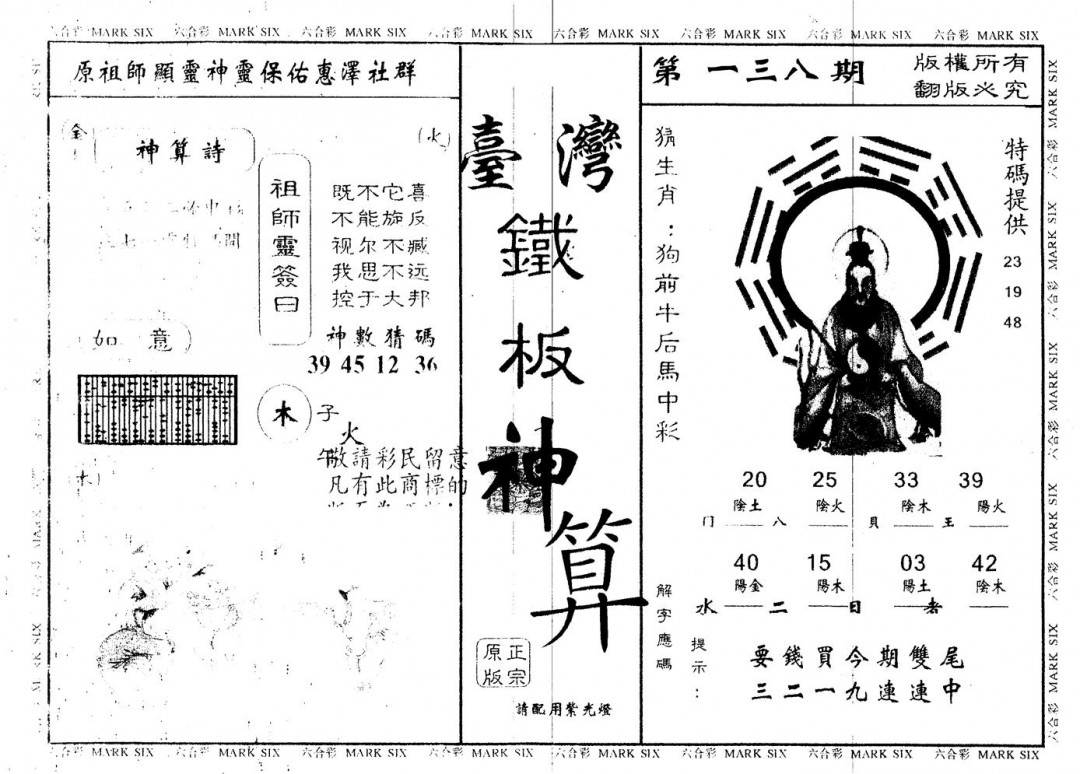 六合彩 MARK SIX 六合彩 MARK SIX 六合彩 MARK SIX 六合彩 MARK SIX 六合彩 MARK SIX 六合彩 MARK SIX 六合彩 MARK SIX 六合彩 MARK SIX
原祖師顯靈神靈保佑惠澤社群
金
神算詩
(火)
祖師靈簽曰
既不它喜
不能旋反
视尔不臧
我思不远
控于大邦
神數猜碼
39 45 12 36
如意
木
子
火
午
敬請彩民留意
凡有此商標的
(木)
臺灣
鐵
板
神
算
正宗
原版
請配用紫光燈
第一三八期
版權所有
翻版必究
猜生肖：狗前牛后馬中彩
特碼提供
23
19
48
20 25 33 39
陰土 陰火 陰木 陽火
门 八 貝 王
40 15 03 42
陽金 陽木 陽土 陰木
水 二 日 者
解字應碼
提示：
要錢買今期雙尾
三二一九連連中
六合彩 MARK SIX 六合彩 MARK SIX 六合彩 MARK SIX 六合彩 MARK SIX 六合彩 MARK SIX
六合彩 MARK SIX 六合彩 MARK SIX 六合彩 MARK SIX 六合彩 MARK SIX 六合彩 MARK SIX 六合彩 MARK SIX 六合彩 MARK SIX 六合彩 MARK SIX